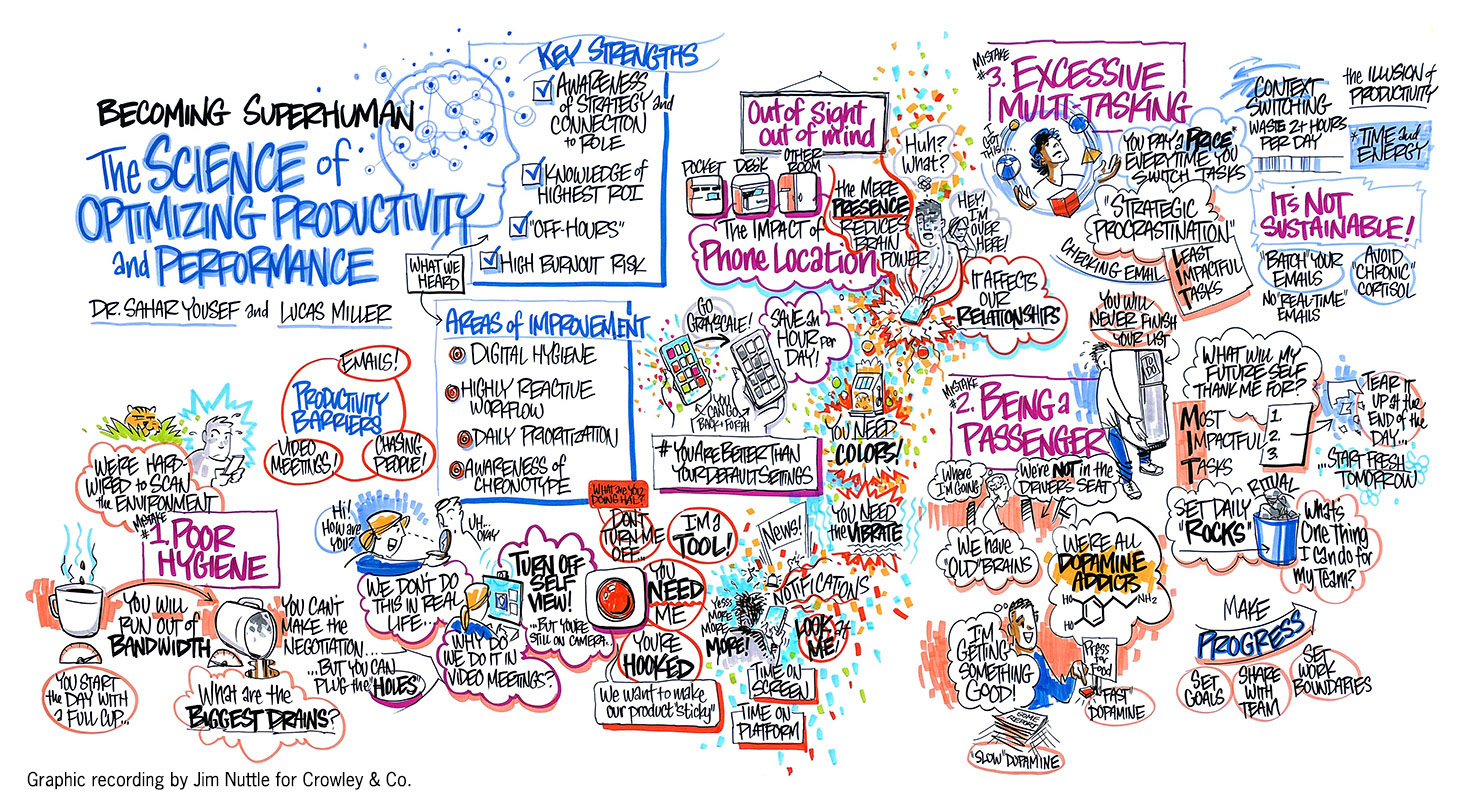 BECOMING SUPERHUMAN
The SCIENCE of
OPTIMIZING PRODUCTIVITY
and PERFORMANCE
DR. SAHAR YOUSEF and LUCAS MILLER
KEY STRENGTHS
AWARENESS
of STRATEGY and
CONNECTION
to ROLE
KNOWLEDGE of
HIGHEST ROI
"OFF-HOURS"
HIGH BURNOUT RISK
WHAT WE
HEARD
AREAS of IMPROVEMENT
DIGITAL HYGIENE
HIGHLY REACTIVE
WORKFLOW
DAILY PRIORITIZATION
AWARENESS of
CHRONOTYPE
EMAILS!
PRODUCTIVITY
BARRIERS
VIDEO
MEETINGS!
CHASING
PEOPLE!
WE'RE HARD-
WIRED to SCAN
the ENVIRONMENT
MISTAKE
#1. POOR
HYGIENE
YOU WILL
RUN OUT of
BANDWIDTH
YOU START
the DAY WITH
a FULL CUP...
YOU CAN'T
MAKE the
NEGOTIATION...
...BUT YOU CAN
PLUG the "HOLES"
What are the
BIGGEST DRAINS?
Hi!
How are
you?
UH...
OKAY
WE DON'T DO
THIS IN REAL
LIFE...
WHY DO
WE DO IT IN
VIDEO MEETINGS?
TURN OFF
SELF
VIEW!
...BUT YOU'RE
STILL ON CAMERA...
WHAT are YOU
DOING HAL?
DON'T
TURN ME
OFF...
I'M a
TOOL!
YOU
NEED
ME
YOU'RE
HOOKED
We want to make
our product "sticky"
Out of Sight
out of mind
POCKET
DESK
OTHER
ROOM
The IMPACT of
Phone Location
the MERE
PRESENCE
REDUCES
BRAIN
POWER
Huh?
What?
HEY!
I'M
OVER
HERE!
IT AFFECTS
OUR
RELATIONSHIPS
GO
GRAYSCALE!
SAVE an
HOUR per
DAY!
YOU
CAN GO
BACK + FORTH
# YOU ARE BETTER THAN
YOUR DEFAULT SETTINGS
YOU NEED
COLORS!
YOU NEED
the VIBRATE
News!
NOTIFICATIONS
YESSS
MORE
MORE
MORE!
LOOK at
ME!
TIME ON
SCREEN
TIME ON
PLATFORM
MISTAKE
#3. EXCESSIVE
MULTI-TASKING
I GOT
THIS...
YOU PAY a PRICE*
EVERYTIME YOU
SWITCH TASKS
CONTEXT
SWITCHING
WASTE 2+ HOURS
PER DAY
the ILLUSION of
PRODUCTIVITY
*TIME and
ENERGY
"STRATEGIC
PROCRASTINATION"
CHECKING EMAIL
LEAST
IMPACTFUL
TASKS
IT'S NOT
SUSTAINABLE!
"BATCH" YOUR
EMAILS
NO "REAL-TIME"
EMAILS
AVOID
"CHRONIC"
CORTISOL
YOU WILL
NEVER FINISH
YOUR LIST
TO
DO
MISTAKE
#2. BEING a
PASSENGER
Where
I'M GOING
We're NOT in the
DRIVERS SEAT
WE have
"OLD" BRAINS
WE'RE ALL
DOPAMINE
ADDICTS
HO
HO
NH2
I'M
GETTING
SOMETHING
GOOD!
Press
for
Food
"FAST"
DOPAMINE
SOME
REPORT
"SLOW" DOPAMINE
WHAT WILL MY
FUTURE SELF
THANK ME FOR?
MOST
IMPACTFUL
TASKS
1.
2.
3.
TEAR IT
UP at the
END of the
DAY...
...START FRESH
TOMORROW
SET DAILY
"ROCKS"
RITUAL
What's
One Thing
I Can do for
my Team?
MAKE
PROGRESS
SET
GOALS
SHARE
WITH
TEAM
SET
WORK
BOUNDARIES
Graphic recording by Jim Nuttle for Crowley & Co.